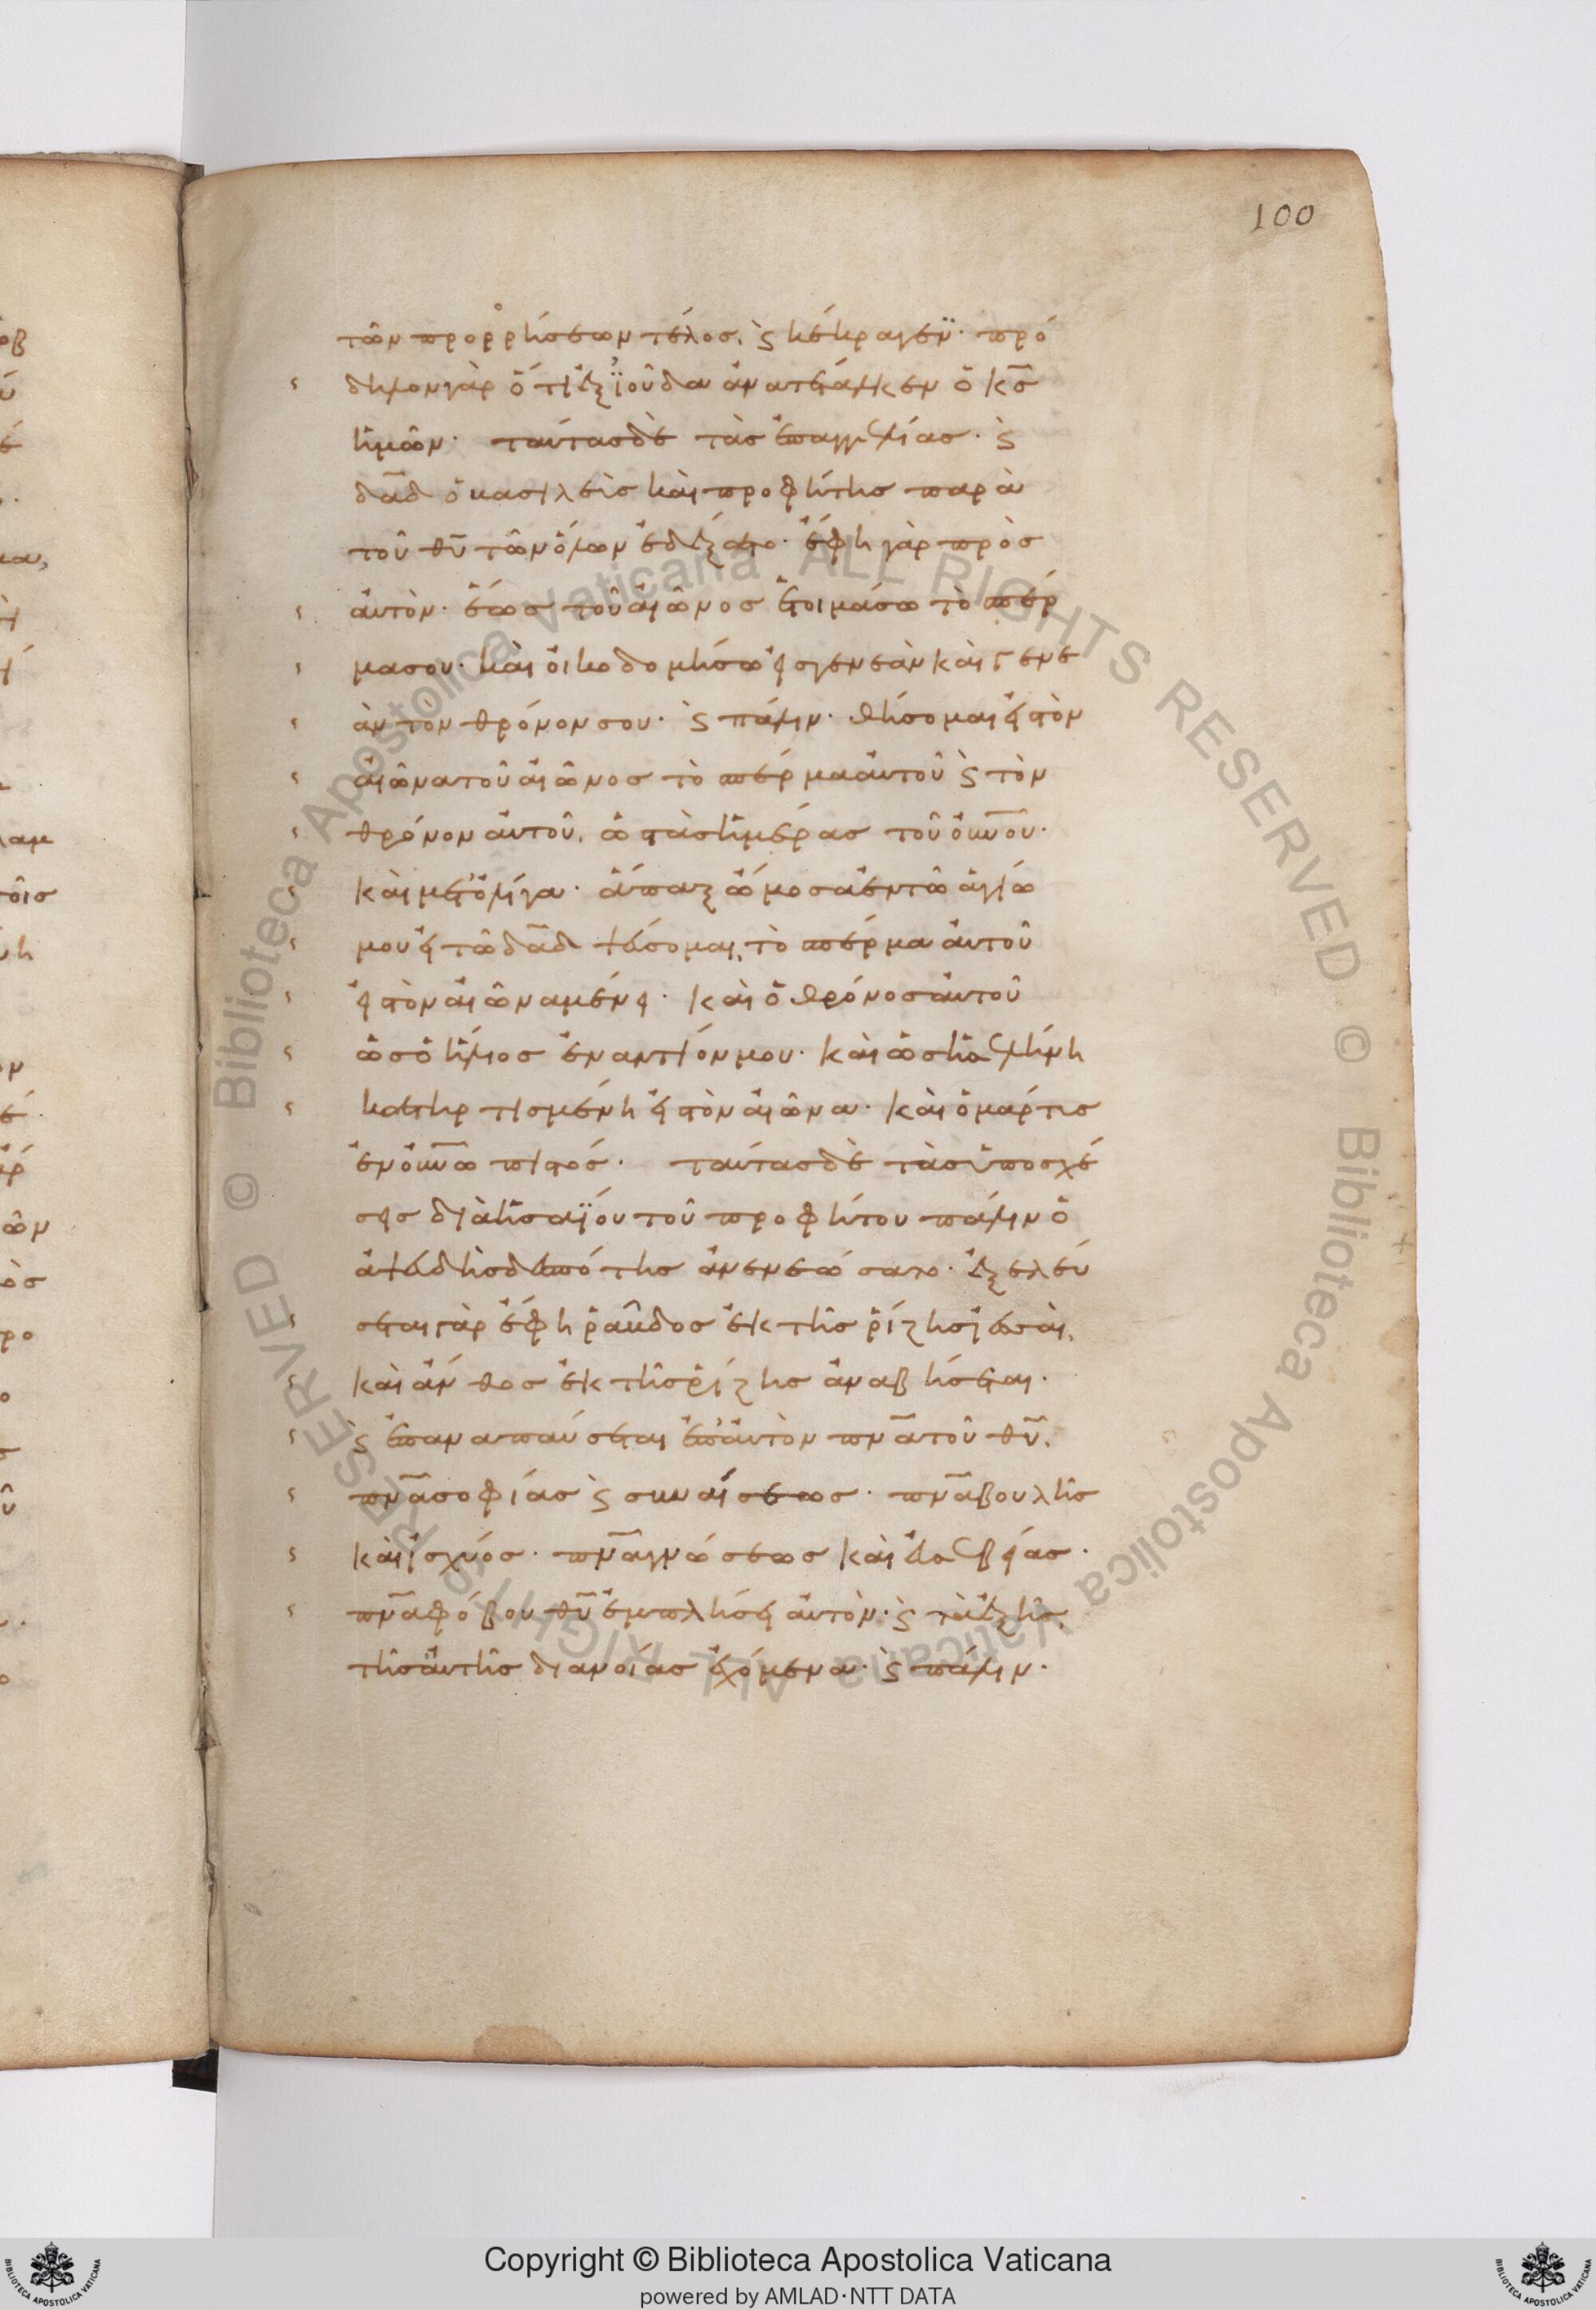 100
τῶν προρρήσεων τέλος, ϗ κέκραγεν· πρό
δηλον γὰρ ὅτι ἐξ ἰούδα ἀνατέταλκεν ὁ κ̅ς̅
ἡμῶν· ταύτας δὲ τὰς ἐπαγγελίας· ϗ
δα̅δ ὁ βασιλεὺς καὶ προφήτης παρὰ
τοῦ θ̅υ̅ τῶν ὅλων ἐδέξατο· ἔφη γὰρ πρὸς
αὐτὸν· ἕως τοῦ αἰῶνος ἑτοιμάσω τὸ σπέρ
μα σου· καὶ οἰκοδομήσω εἰς γενεὰν καὶ γενε
ὰν τὸν θρόνον σου· ϗ πάλιν· θήσομαι εἰς τὸν
αἰῶνα τοῦ αἰῶνος τὸ σπέρμα αὐτοῦ ϗ τὸν
θρόνον αὐτοῦ, ὡς τὰς ἡμέρας τοῦ ου̅νου·
καὶ μετ' ὀλίγα· ἅπαξ ὤμοσα ἐν τῶ ἁγίω
μου εἰ τῶ δα̅δ ψεύσομαι, τὸ σπέρμα αὐτοῦ
εἰς τὸν αἰῶνα μένει· καὶ ὁ θρόνος αὐτοῦ
ὡς ὁ ἥλιος ἐναντίον μου· καὶ ὡς ἡ σελήνη
κατηρτισμένη εἰς τὸν αἰῶνα· καὶ ὁ μάρτυς
ἐν ου̅νω πιστός· ταύτας δὲ τὰς ὑποσχέ
σεις διὰ ἡσαΐου τοῦ προφήτου πάλιν ὁ
ἀψευδὴς δεσπότης ἀνενεώσατο· ἐξελεύ
σεται γὰρ ἔφη ῥάβδος ἐκ τῆς ῥίζης ἰεσσαί,
καὶ ἄνθος ἐκ τῆς ῥίζης ἀναβήσεται·
ϗ ἐπαναπαύσεται ἐπ' αὐτὸν πν̅α τοῦ θ̅υ̅,
πν̅α σοφίας ϗ συνέσεως· πν̅α βουλῆς
καὶ ἰσχύος· πν̅α γνώσεως καὶ εὐσεβείας·
πν̅α φόβου θ̅υ̅ ἐμπλήσει αὐτὸν· ϗ τὰ ἑξῆς
τῆς αὐτῆς διανοίας ἐχόμενα· ϗ πάλιν·
© Biblioteca Apostolica Vaticana ALL RIGHTS RESERVED © Biblioteca Apostolica Vaticana ALL RIGHTS RESERVED
Copyright © Biblioteca Apostolica Vaticana
powered by AMLAD·NTT DATA